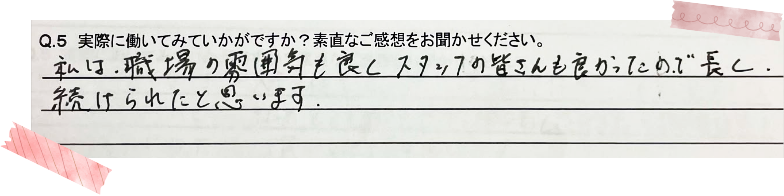 Q.5 実際に働いてみていかがですか?素直なご感想をお聞かせください。
私は、職場の雰囲気も良くスタッフの皆さんも良かったので長く、
続けられたと思います.